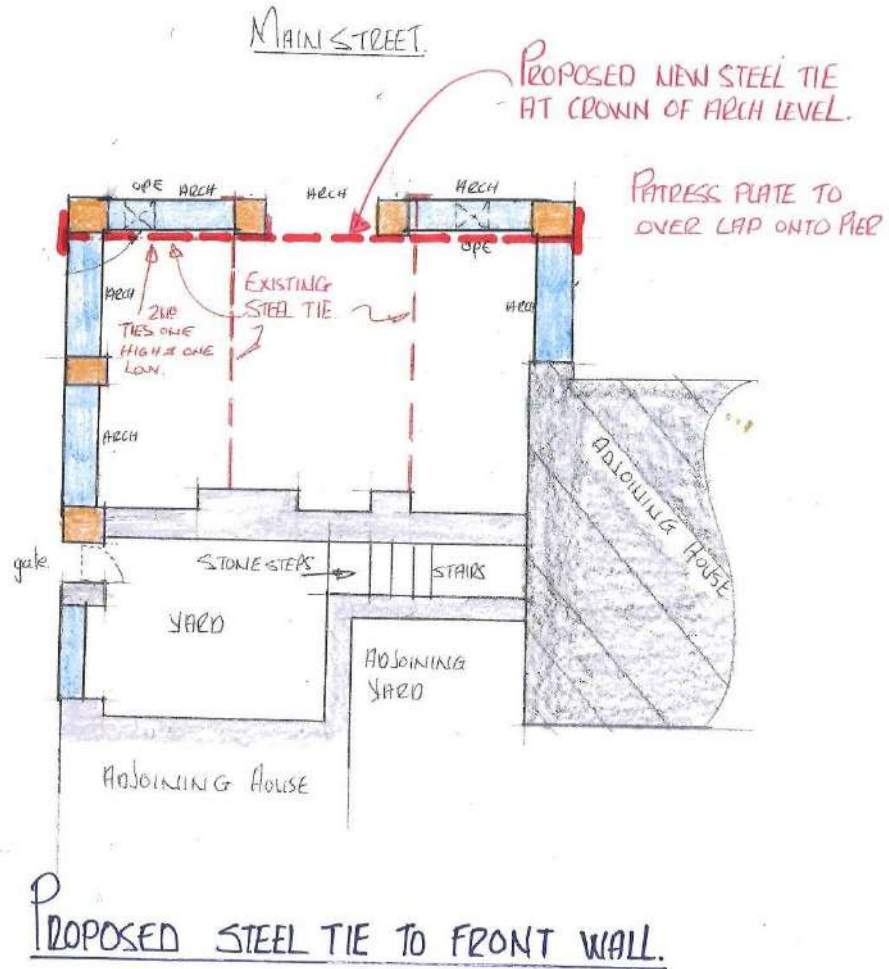 MAIN STREET.
PROPOSED NEW STEEL TIE
AT CROWN OF ARCH LEVEL.
PATRESS PLATE TO
OVER LAP ONTO PIER
OPE
ARCH
ARCH
ARCH
OPE
EXISTING
STEEL TIE
ARCH
2NO
TIES ONE
HIGH & ONE
LOW.
ARCH
ARCH
ADJOINING HOUSE
gate
STONE STEPS
STAIRS
YARD
ADJOINING
YARD
ADJOINING HOUSE
PROPOSED STEEL TIE TO FRONT WALL.